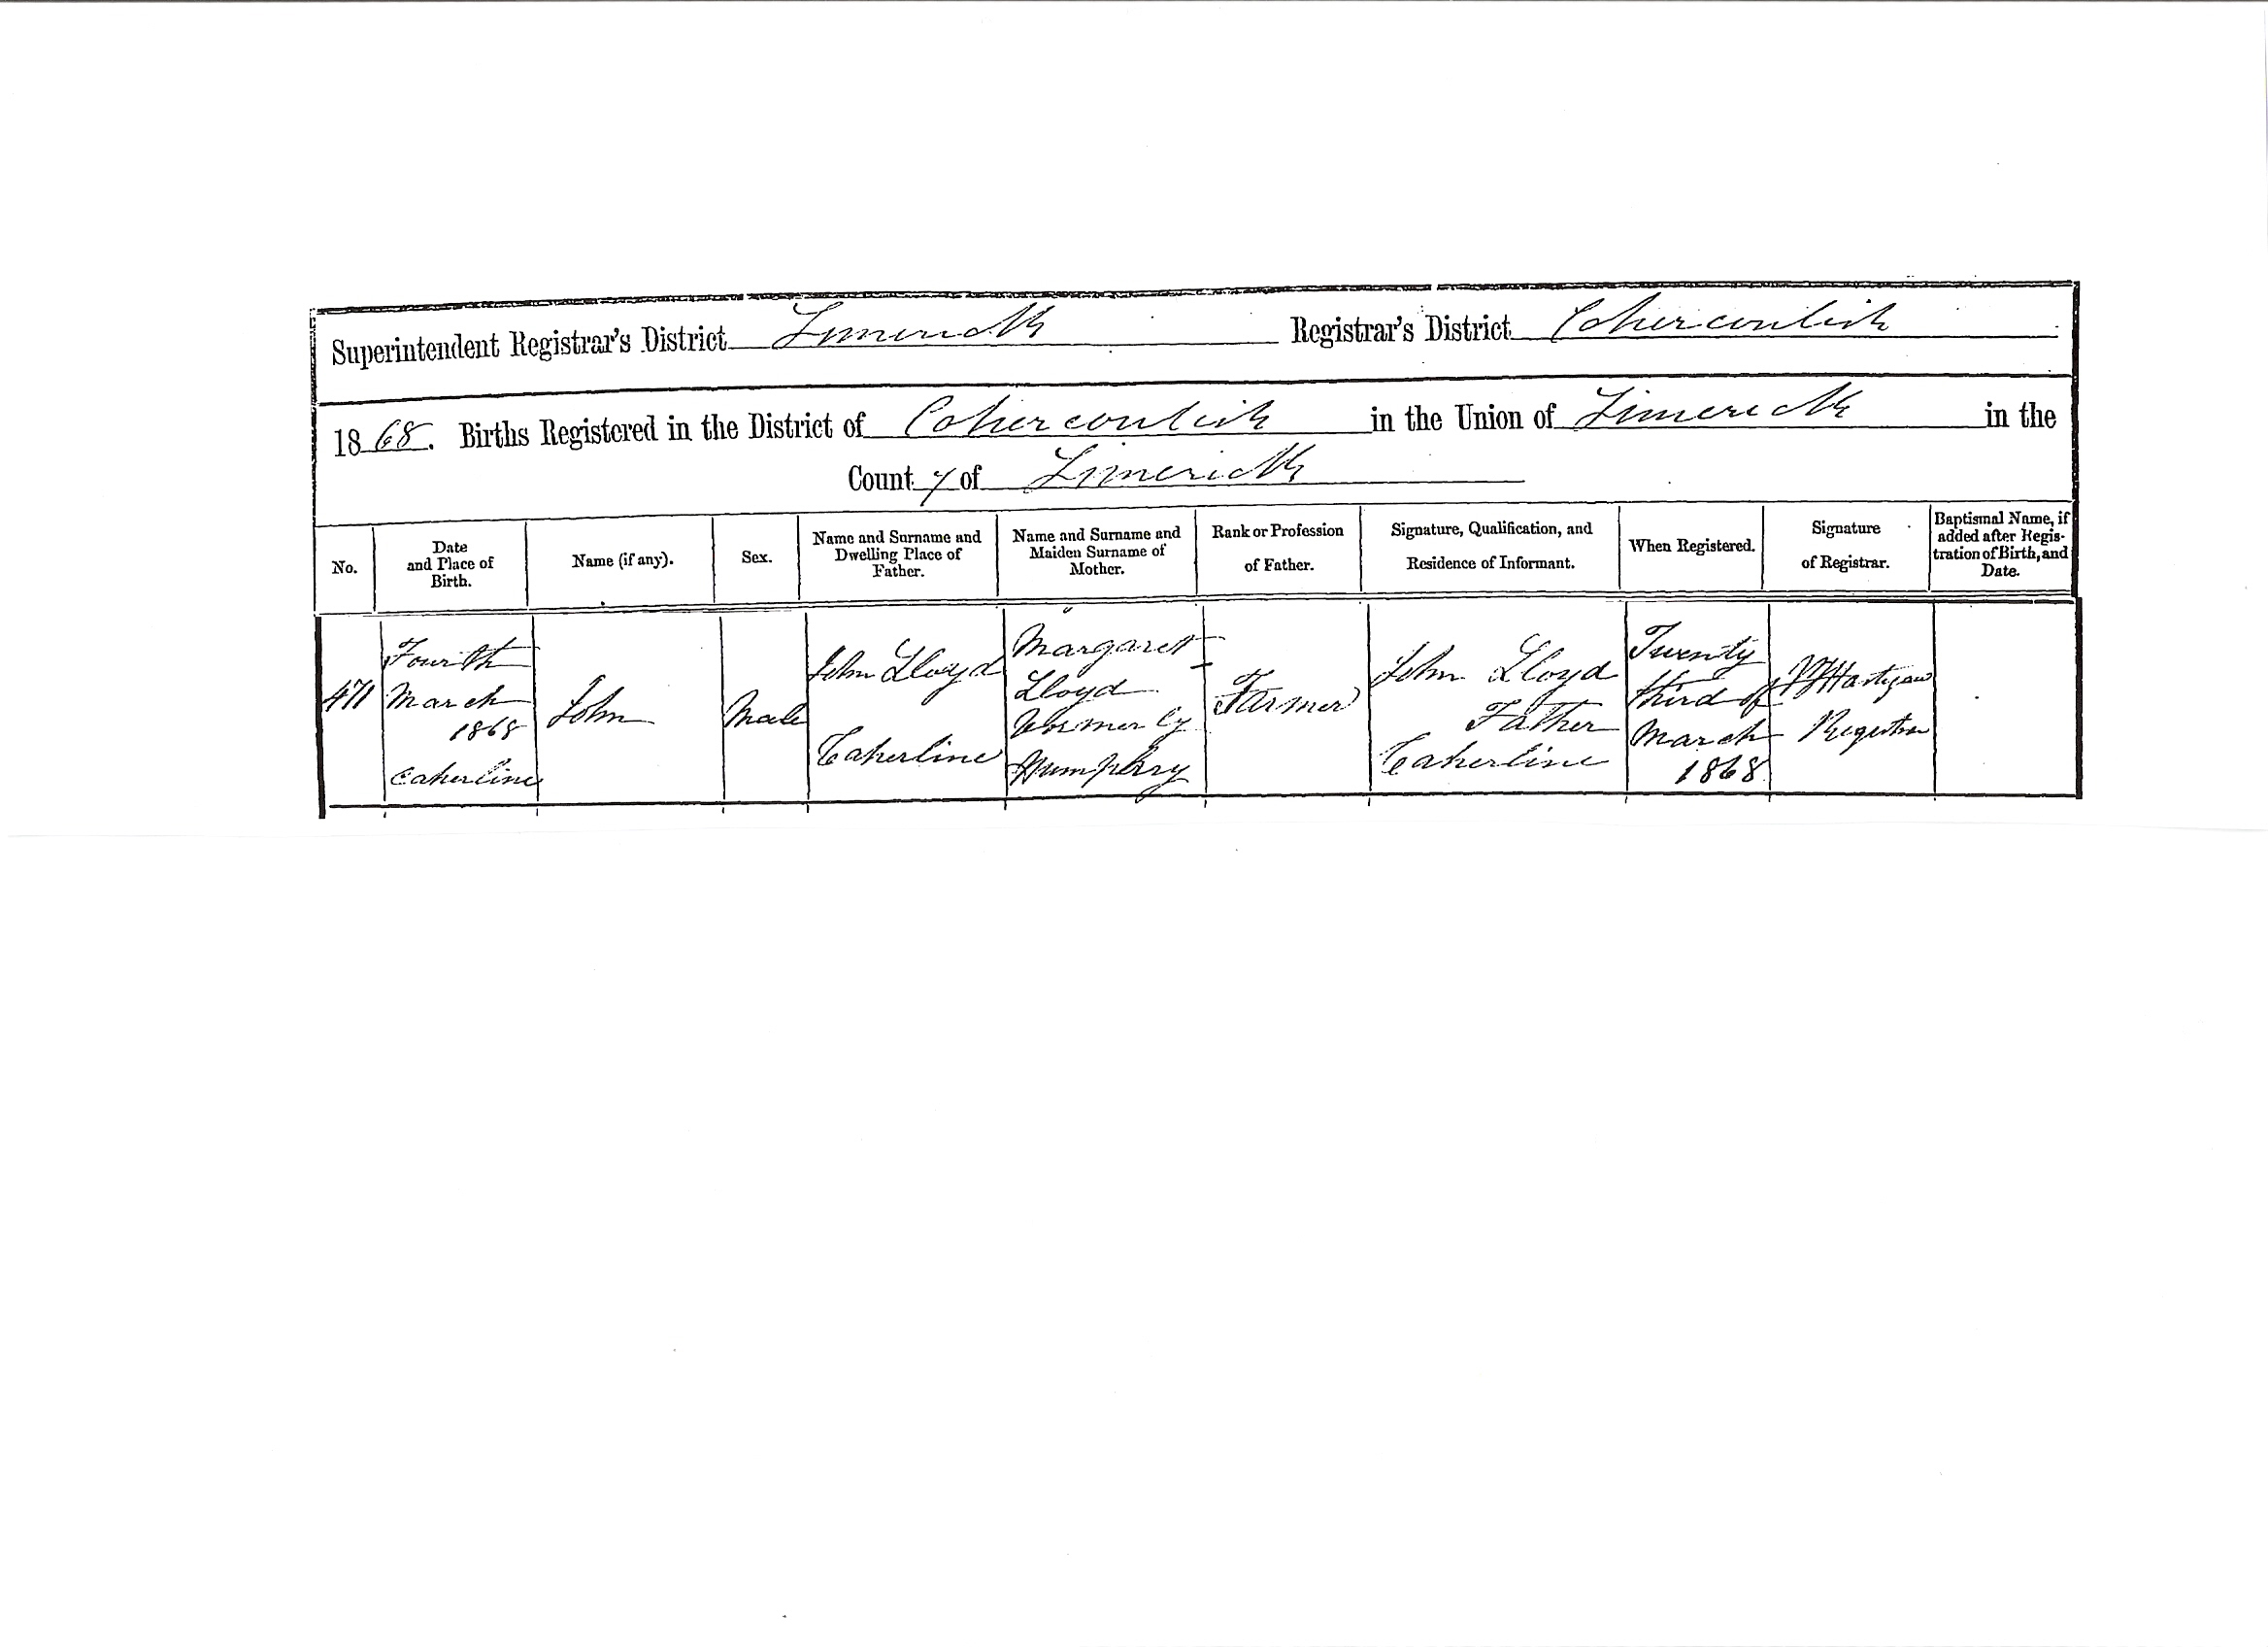 Superintendent Registrar's District Limerick Registrar's District Caherconlish
1868. Births Registered in the District of Caherconlish in the Union of Limerick in the
County of Limerick
No.
Date
and Place of
Birth.
Name (if any).
Sex.
Name and Surname and
Dwelling Place of
Father.
Name and Surname and
Maiden Surname of
Mother.
Rank or Profession
of Father.
Signature, Qualification, and
Residence of Informant.
When Registered.
Signature
of Registrar.
Baptismal Name, if
added after Regis-
tration of Birth, and
Date.
471
Fourth
March
1868
Caherline
John
Male
John Lloyd
Caherline
Margaret
Lloyd
formerly
Humphry
Farmer
John Lloyd
Father
Caherline
Twenty
third of
March
1868
Hartigan
Registrar